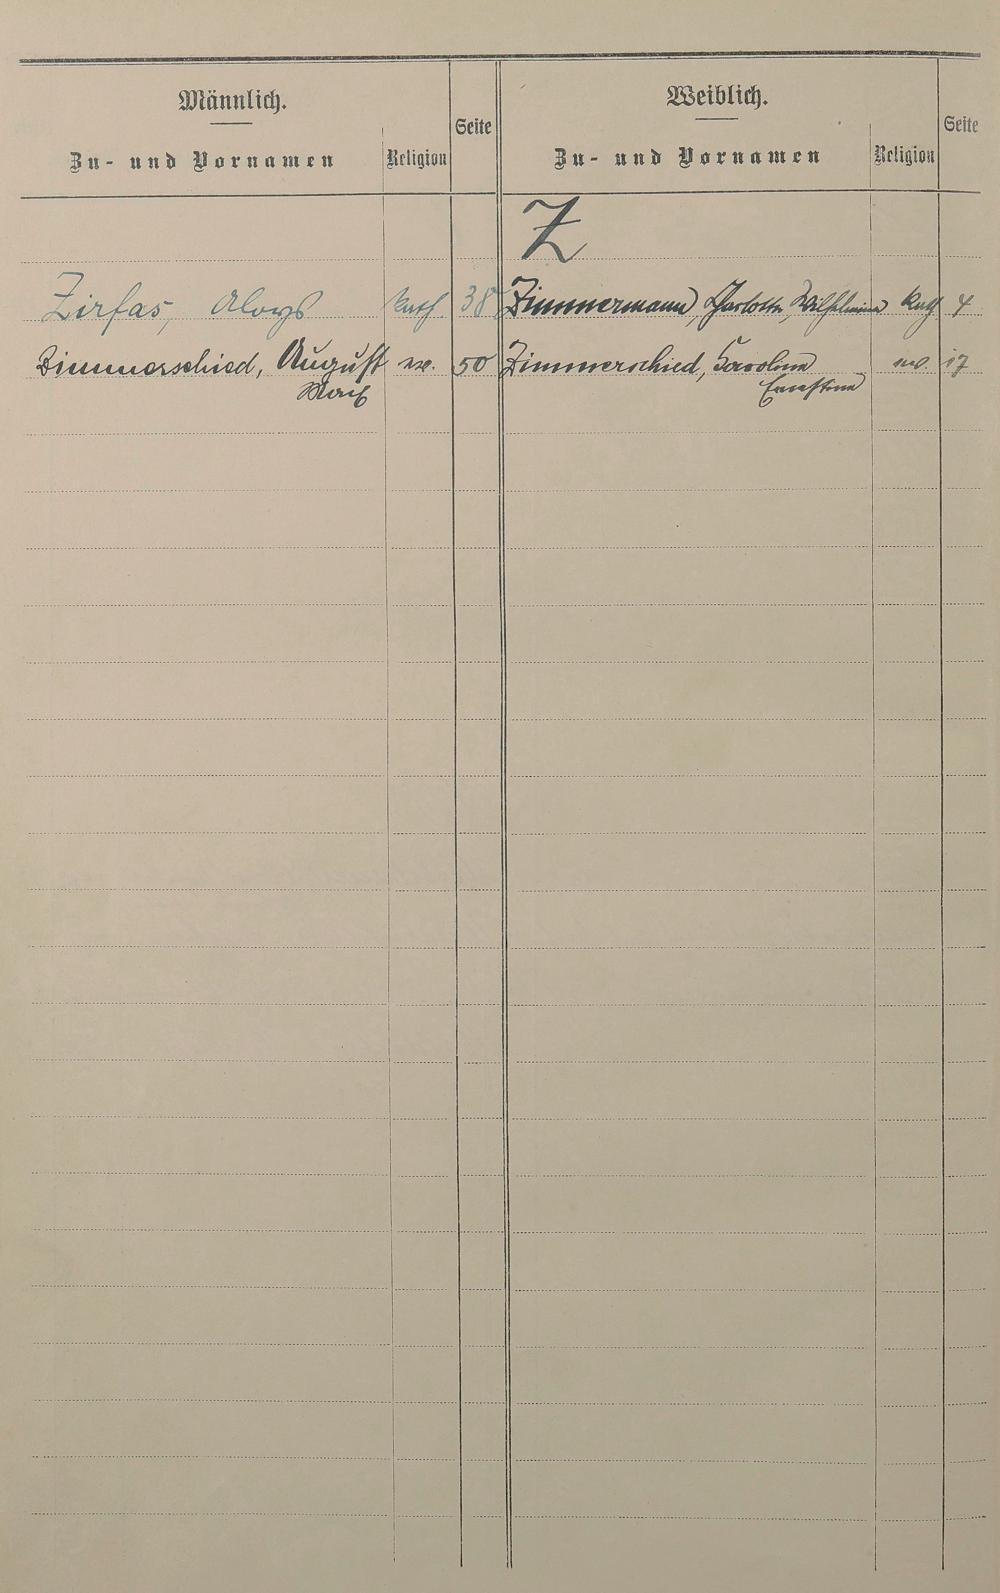 Männlich.
Zu- und Vornamen
Religion
Seite
Weiblich.
Zu- und Vornamen
Religion
Seite
Z
Zirfas, Aloys kath. 38
Zimmermann, Charlotte, Wilhelmine kath 4
Zimmerschied, August ev. 50
Zimmerschied, Caroline ev. 17
Ernestine